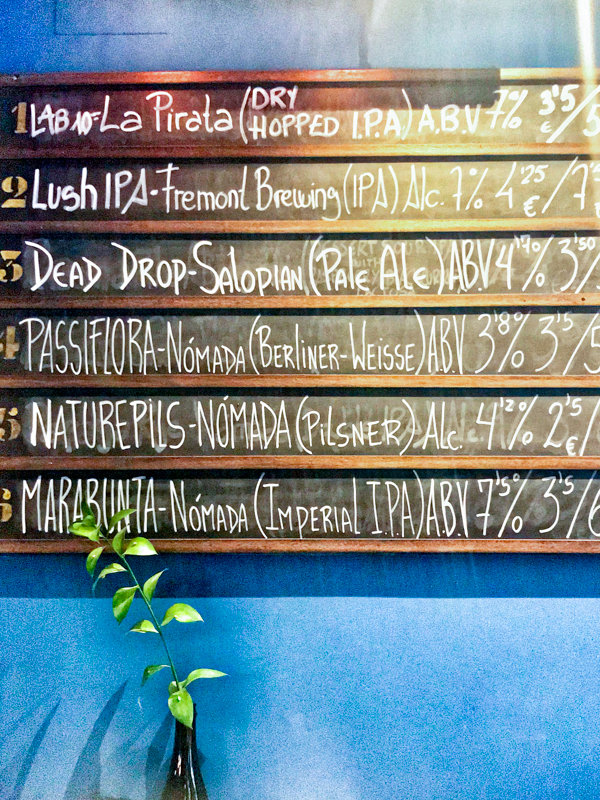 1 LAB10=La Pirata (DRY HOPPED I.P.A.) A.B.V 7% 3'5 € / 5
2 Lush IPA-Fremont Brewing (IPA) Alc. 7% 4'25 € / 7'5
3 DEAD DROP-SALOPIAN (PALE ALE) ABV 4'70% 3'50 /
4 PASSIFLORA-NÓMADA (BERLINER-WEISSE) A.B.V 3'8% 3'5 / 5
5 NATUREPILS-NÓMADA (PILSNER) ALC. 4'2% 2'5 € /
6 MARABUNTA-NÓMADA (IMPERIAL I.P.A) A.B.V 7'5% 3'5 / 6